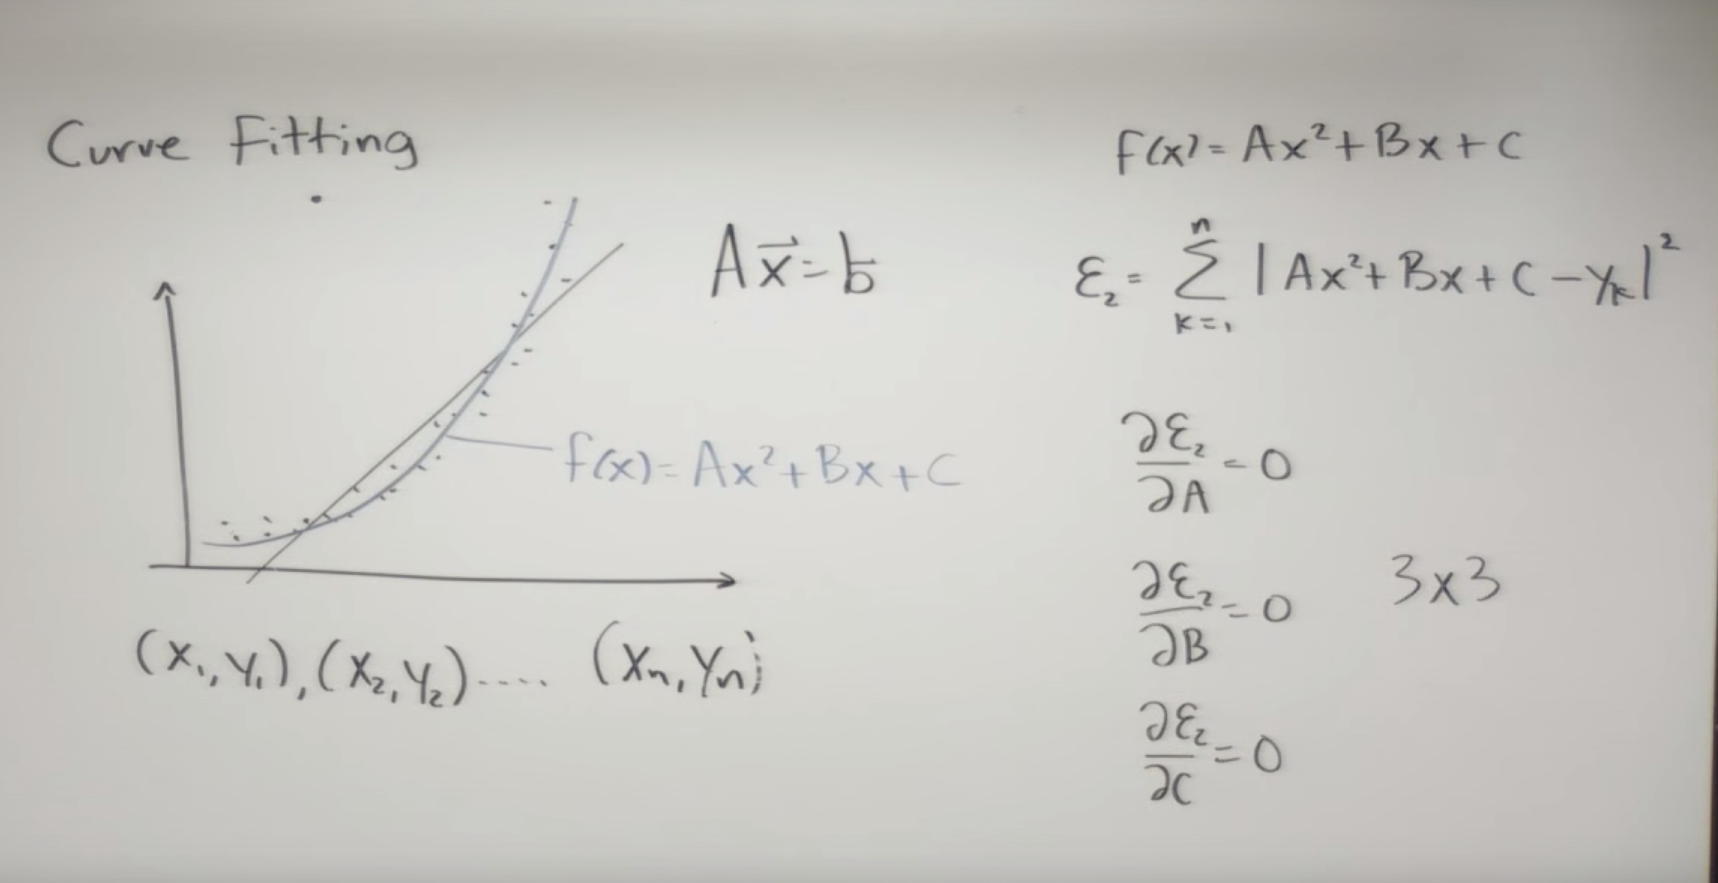 Curve Fitting
Ax⃗=b
f(x)=Ax²+Bx+C
(x₁,y₁),(x₂,y₂).... (xₙ,yₙ)
f(x)=Ax²+Bx+C
ε₂= Σ_{k=1}^{n} |Ax²+Bx+C-yₖ|²
∂ε₂/∂A=0
∂ε₂/∂B=0 3x3
∂ε₂/∂C=0